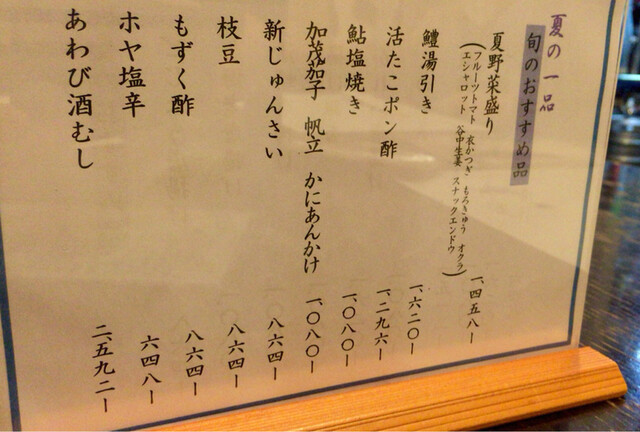 夏の一品
旬のおすすめ品
夏野菜盛り 一、四五八ー
(フルーツトマト 衣かつぎ もろきゅう オクラ
エシャロット 谷中生姜 スナックエンドウ)
鱧湯引き 一、六二〇ー
活たこポン酢 一、二九六ー
鮎塩焼き 一、〇八〇ー
加茂茄子 帆立 かにあんかけ 一、〇八〇ー
新じゅんさい 八六四ー
枝豆 八六四ー
もずく酢 八六四ー
ホヤ塩辛 六四八ー
あわび酒むし 二、五九二ー